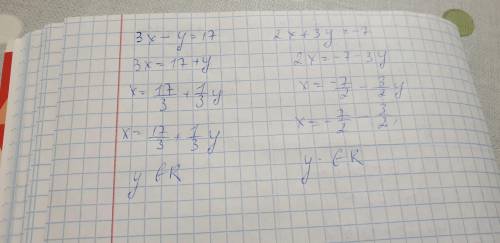 3x - y = 17
3x = 17 + y
x = 17/3 + 1/3 y
x = 17/3 + 1/3 y
y ∈ R
2x + 3y = -7
2x = -7 - 3y
x = -7/2 - 3/2 y
x = -7/2 - 3/2,
y ∈ R